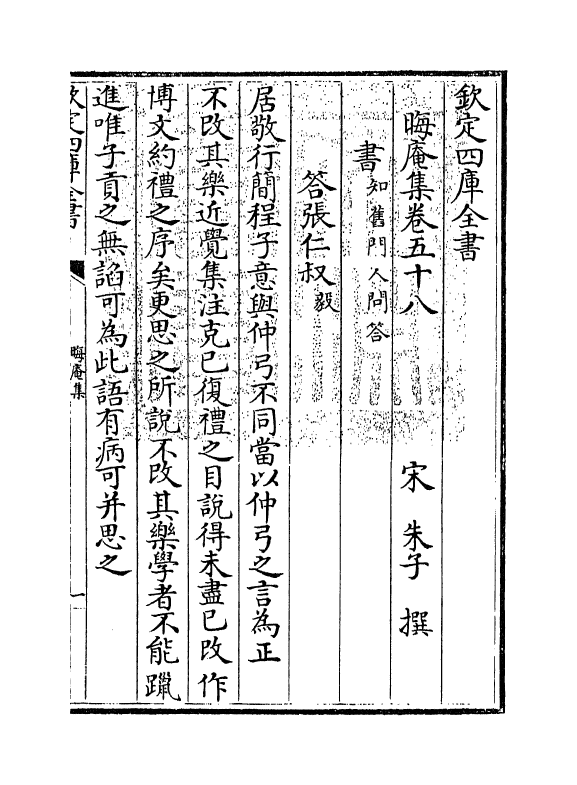 欽定四庫全書
晦庵集卷五十八
宋 朱子 撰
書知舊門人問答
答張仁叔毅
居敬行簡程子意與仲弓不同當以仲弓之言為正
不改其樂近覺集注克已復禮之目說得未盡已改作
博文約禮之序矣更思之所說不改其樂學者不能躐
進唯子貢之無諂可為此語有病可并思之
欽定四庫全書
晦庵集
一